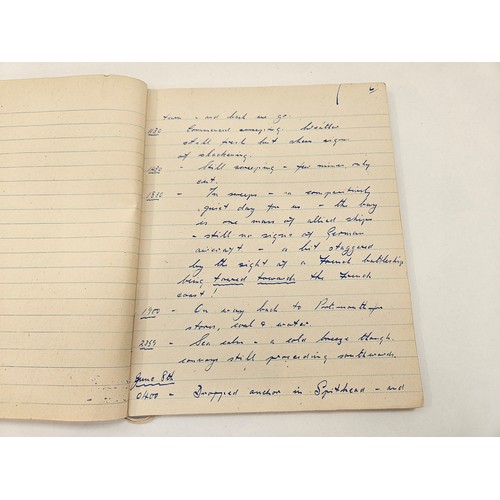 6
turn - and back we go.
Commenced sweeping. Weather
still fresh but shows signs
of slackening.
- Still sweeping - few mines only
cut.
- In sweeps - a comparatively
quiet day for us - the bay
is one mass of allied ships
- still no signs of German
aircraft - a bit staggered
by the sight of a French battleship
being towed towards the French
coast!
1900 - On way back to Portsmouth for
stores, coal & water.
2359 - Sea calm - a cold breeze though.
convoys still proceeding southwards.
June 8th
0400 - Dropped anchor in Spithead - and